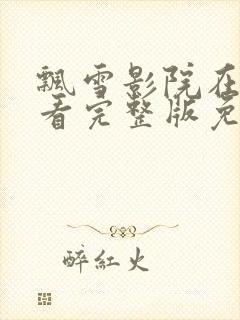 飄雪影院在
看完整版免
醉紅火